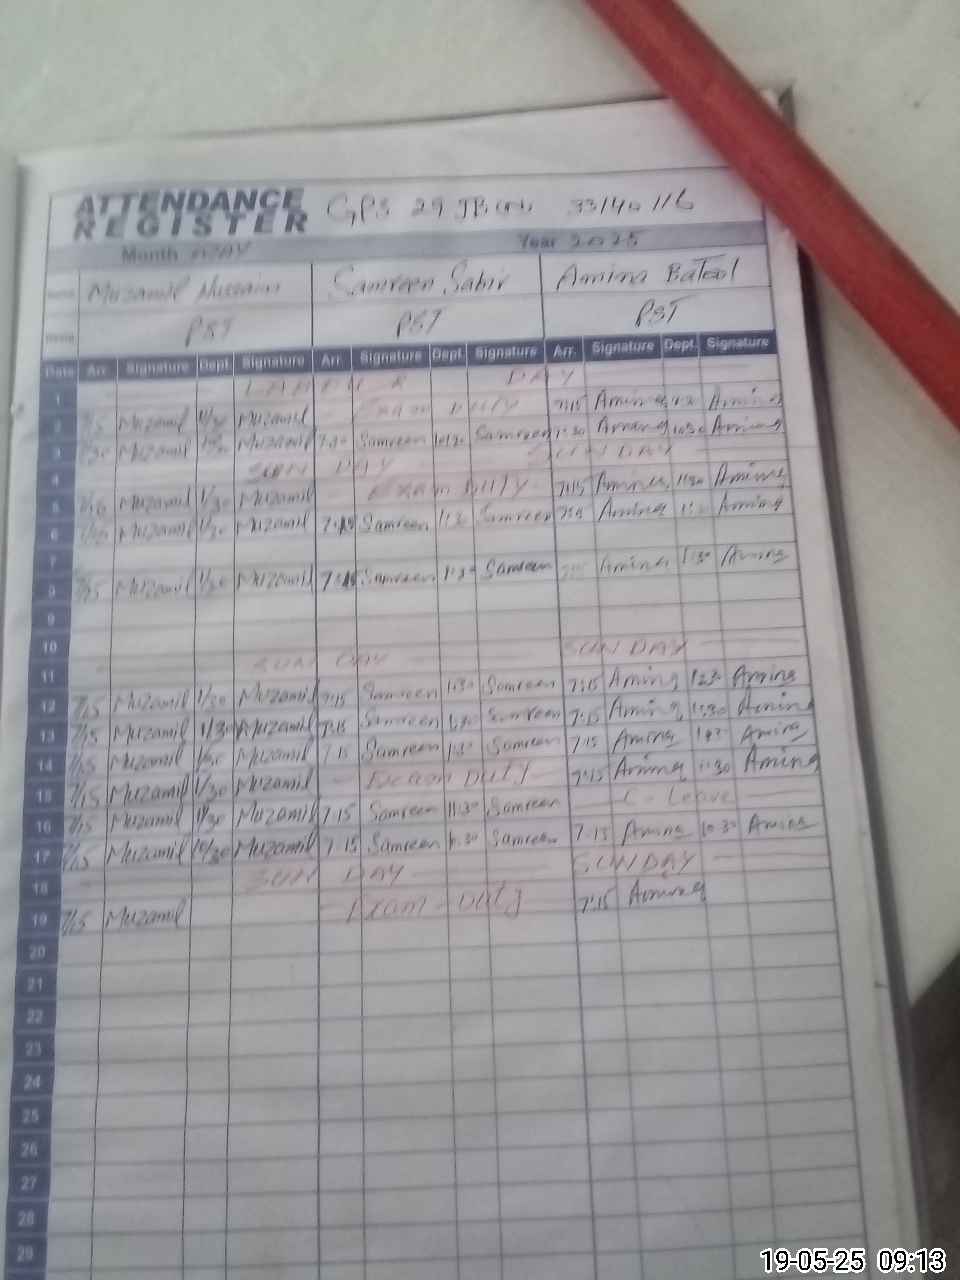 ATTENDANCE REGISTER GPS 29 JB 33140116
Month MAY Year 2025
Name Muzamil Hussain Samreen Sabir Amina Batool
PST PST PST
Date Arr. Signature Dept. Signature Arr. Signature Dept. Signature Arr. Signature Dept. Signature
1 LABOUR DAY
2 7/15 Muzamil 11/30 Muzamil Exam Duty 7:15 Amina Amina
3 7/30 Muzamil Muzamil Samreen 10:30 Samreen 7:30 Amina 10:30 Amina
4 SUN DAY SUN DAY
5 Muzamil 1/30 Muzamil Exam Duty 7:15 Amina 11:30 Amina
6 Muzamil 1/30 Muzamil 7:15 Samreen Samreen Amina Amina
7
8 7/15 Muzamil 1/30 Muzamil 7:15 Samreen 1:30 Samreen Amina 1:30 Amina
9
10
11 SUN DAY SUN DAY
12 7/15 Muzamil 1/30 Muzamil 7:15 Samreen 1:30 Samreen 7:15 Amina Amina
13 7/15 Muzamil 1/30 Muzamil 7:15 Samreen 1:30 Samreen 7:15 Amina 1:30 Amina
14 7/15 Muzamil 1/30 Muzamil 7:15 Samreen 1:30 Samreen 7:15 Amina Amina
15 7/15 Muzamil 1/30 Muzamil Exam Duty 7:15 Amina 1:30 Amina
16 7/15 Muzamil 11/30 Muzamil 7:15 Samreen 11:30 Samreen C-Leave
17 7/15 Muzamil 10/30 Muzamil 7:15 Samreen Samreen 7:15 Amina 10:30 Amina
18 SUN DAY SUNDAY
19 7/15 Muzamil Exam-Duty 7:15 Amina
20
21
22
23
24
25
26
27
28
29
19-05-25 09:13